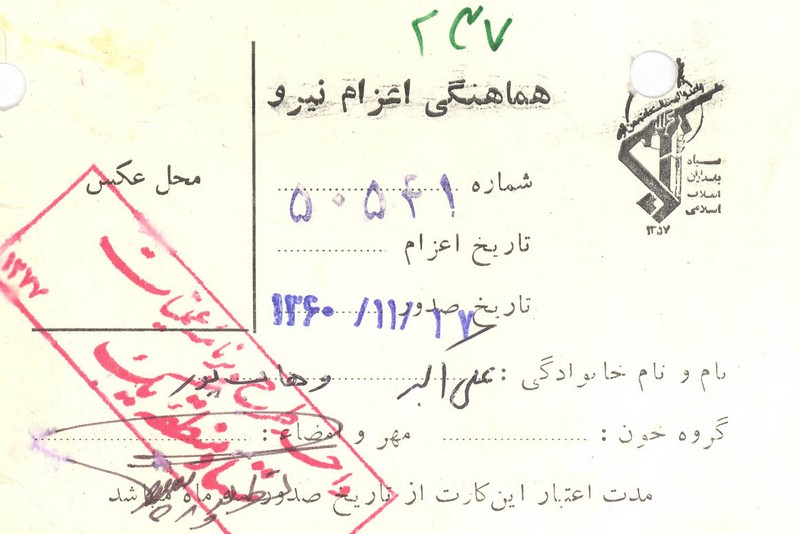 ۲۴۷
هماهنگی اعزام نیرو
سپاه
پاسداران
انقلاب
اسلامی
۱۳۵۷
محل عکس
شماره ۵۰۵۴۱
تاریخ اعزام
تاریخ صدور ۱۳۶۰/۱۱/۱۷
نام و نام خانوادگی : علی اکبر وهاب پور
گروه خون : مهر و امضاء :
مدت اعتبار این کارت از تاریخ صدور ماه میباشد